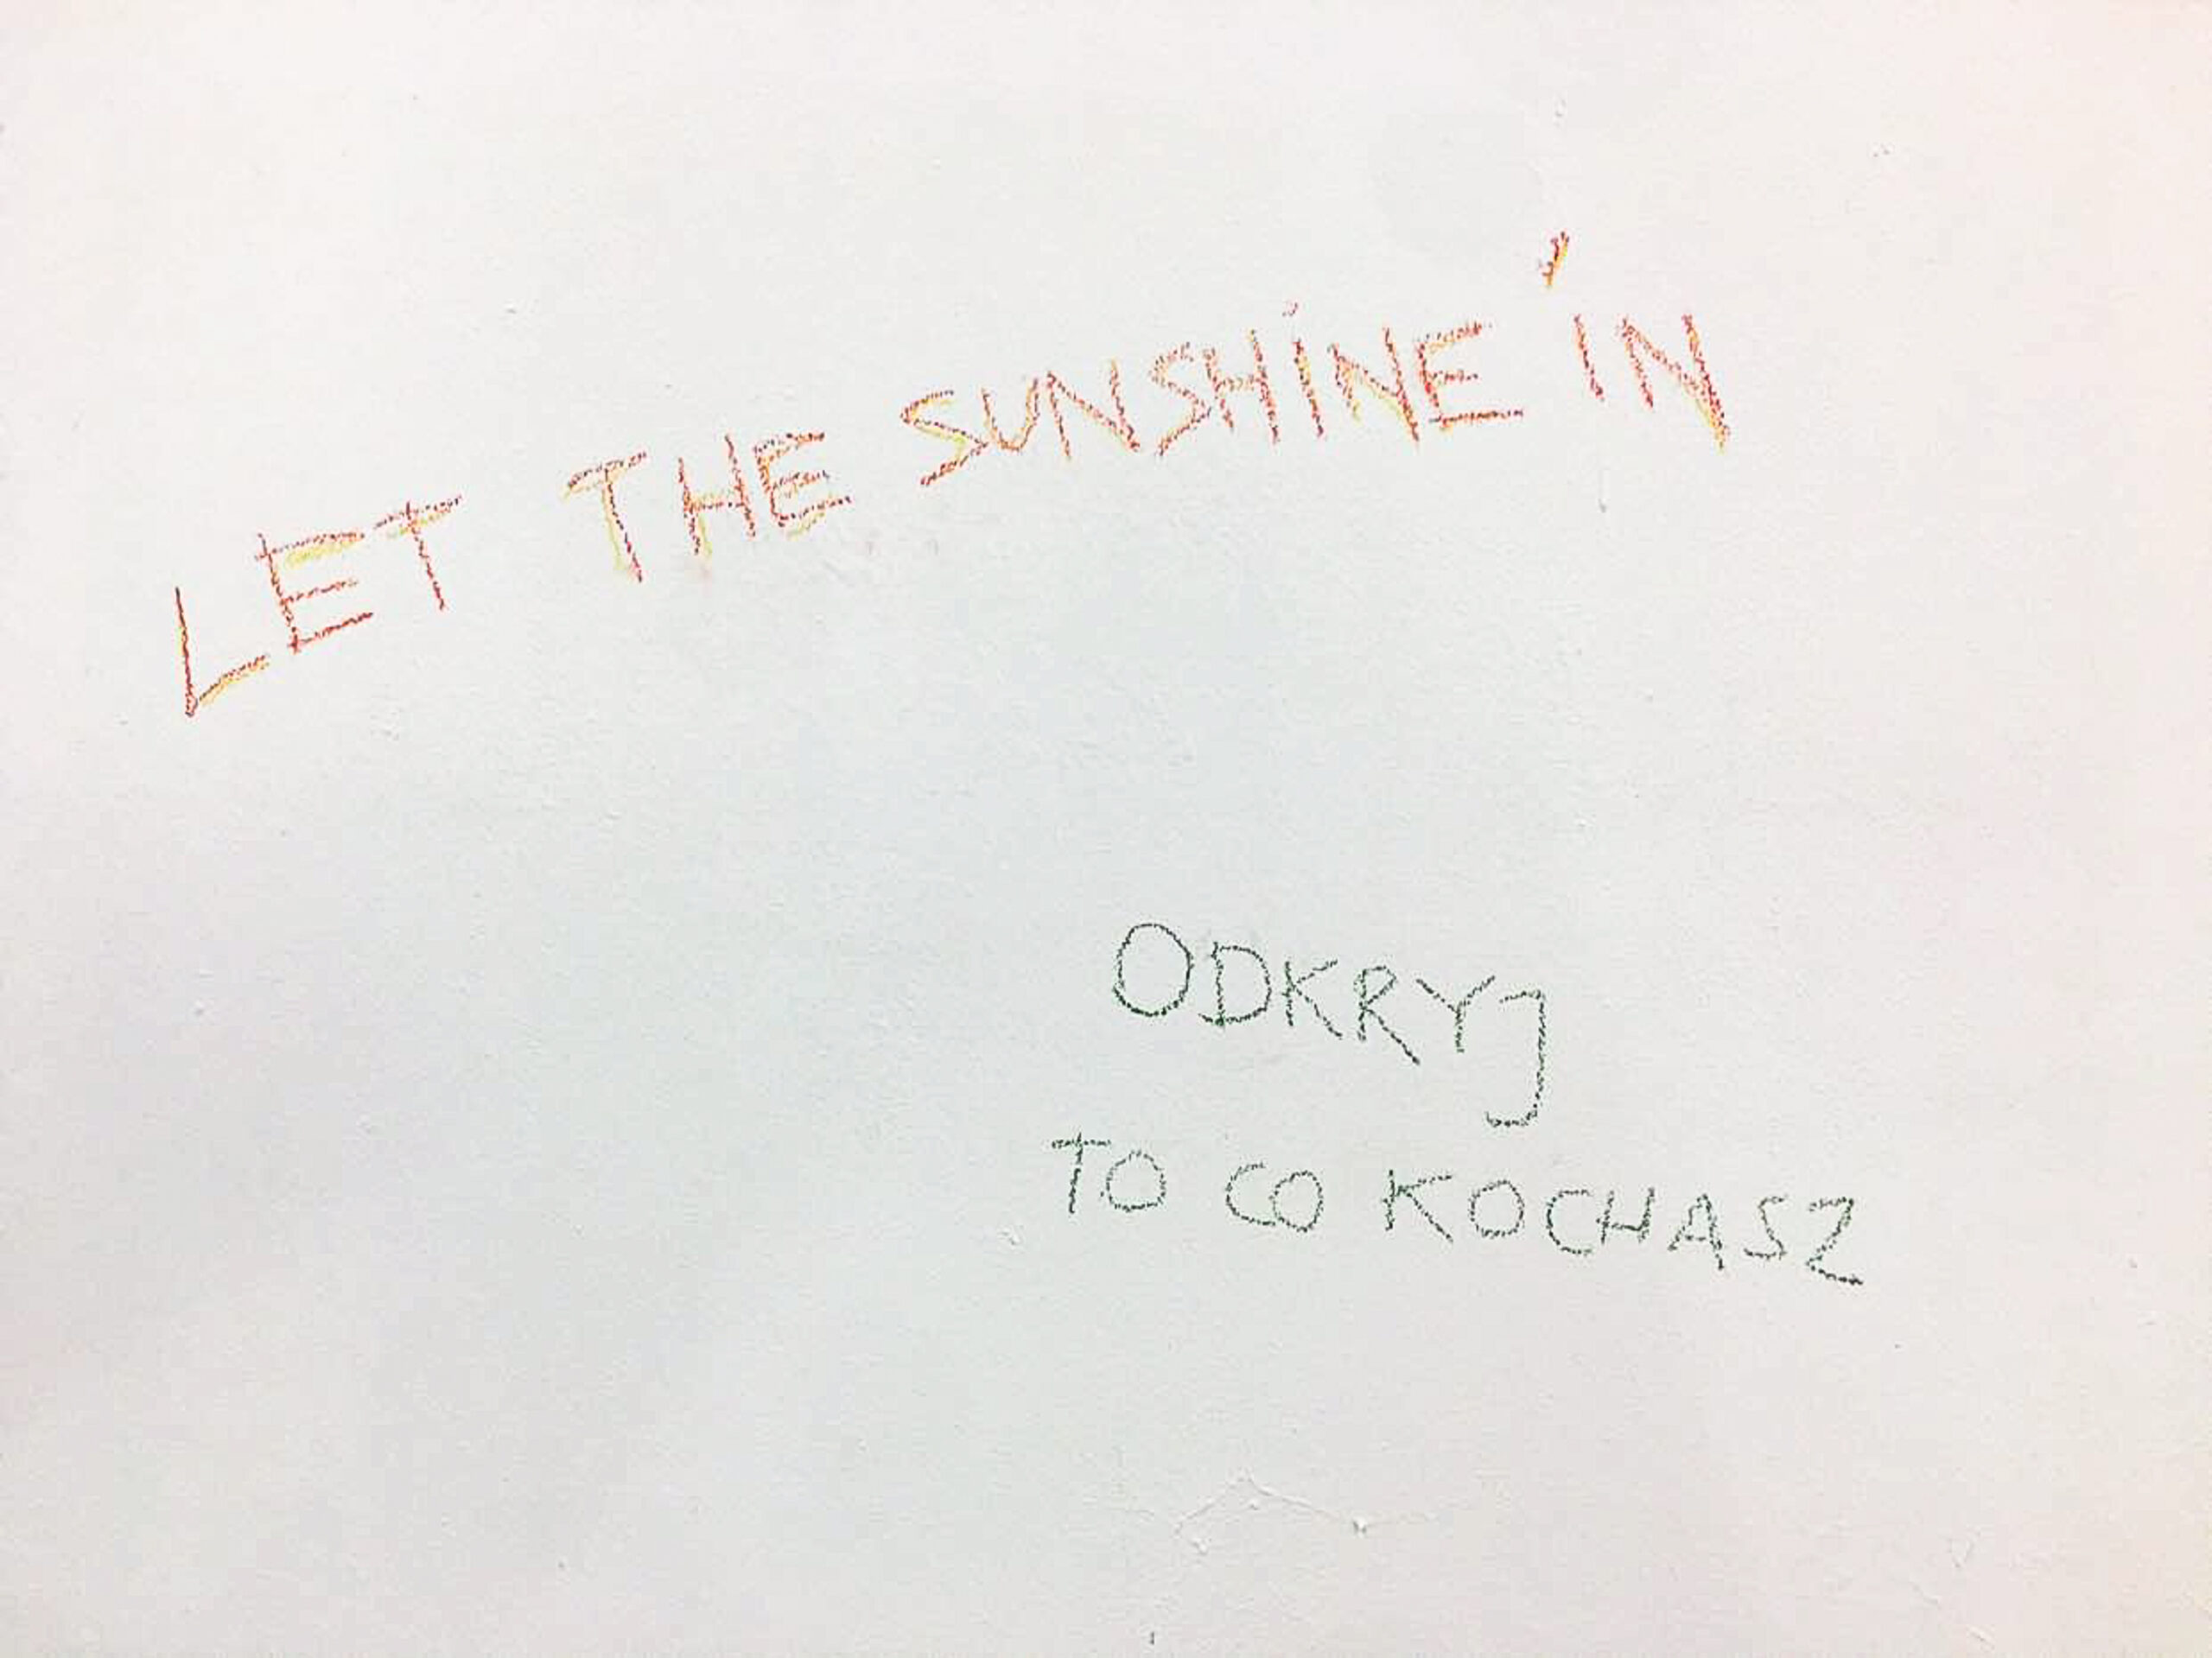 LET THE SUNSHiNE iN
ODKRYJ
TO CO KOCHASZ